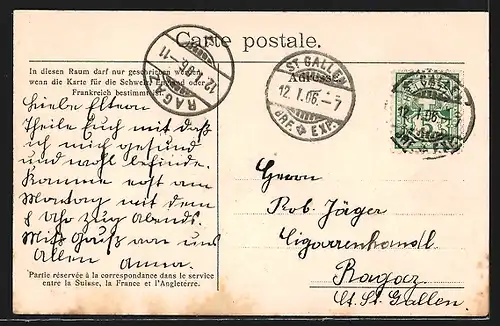 Carte postale.
In diesen Raum darf nur geschrieben werden,
wenn die Karte für die Schweiz, England oder
Frankreich bestimmt ist.
RAGAZ
12.I.06.-11
ST GALLEN
12.I.06.-7
BRF. EXP.
Adresse
ST GALLEN
12.I.06.-7
BRF. EXP.
Liebe Eltern
Theile Euch mit daß
ich mich gesund
und wohl befinde.
Komme erst am
Montag mit dem
8 Uhr zug Abends.
Mit Gruß von uns
Allen Anna.
Herrn
Rob. Jäger
Cigarrenhandl.
Ragaz
Ct. St. Gallen
Partie réservée à la correspondance dans le service
entre la Suisse, la France et l'Angleterre.